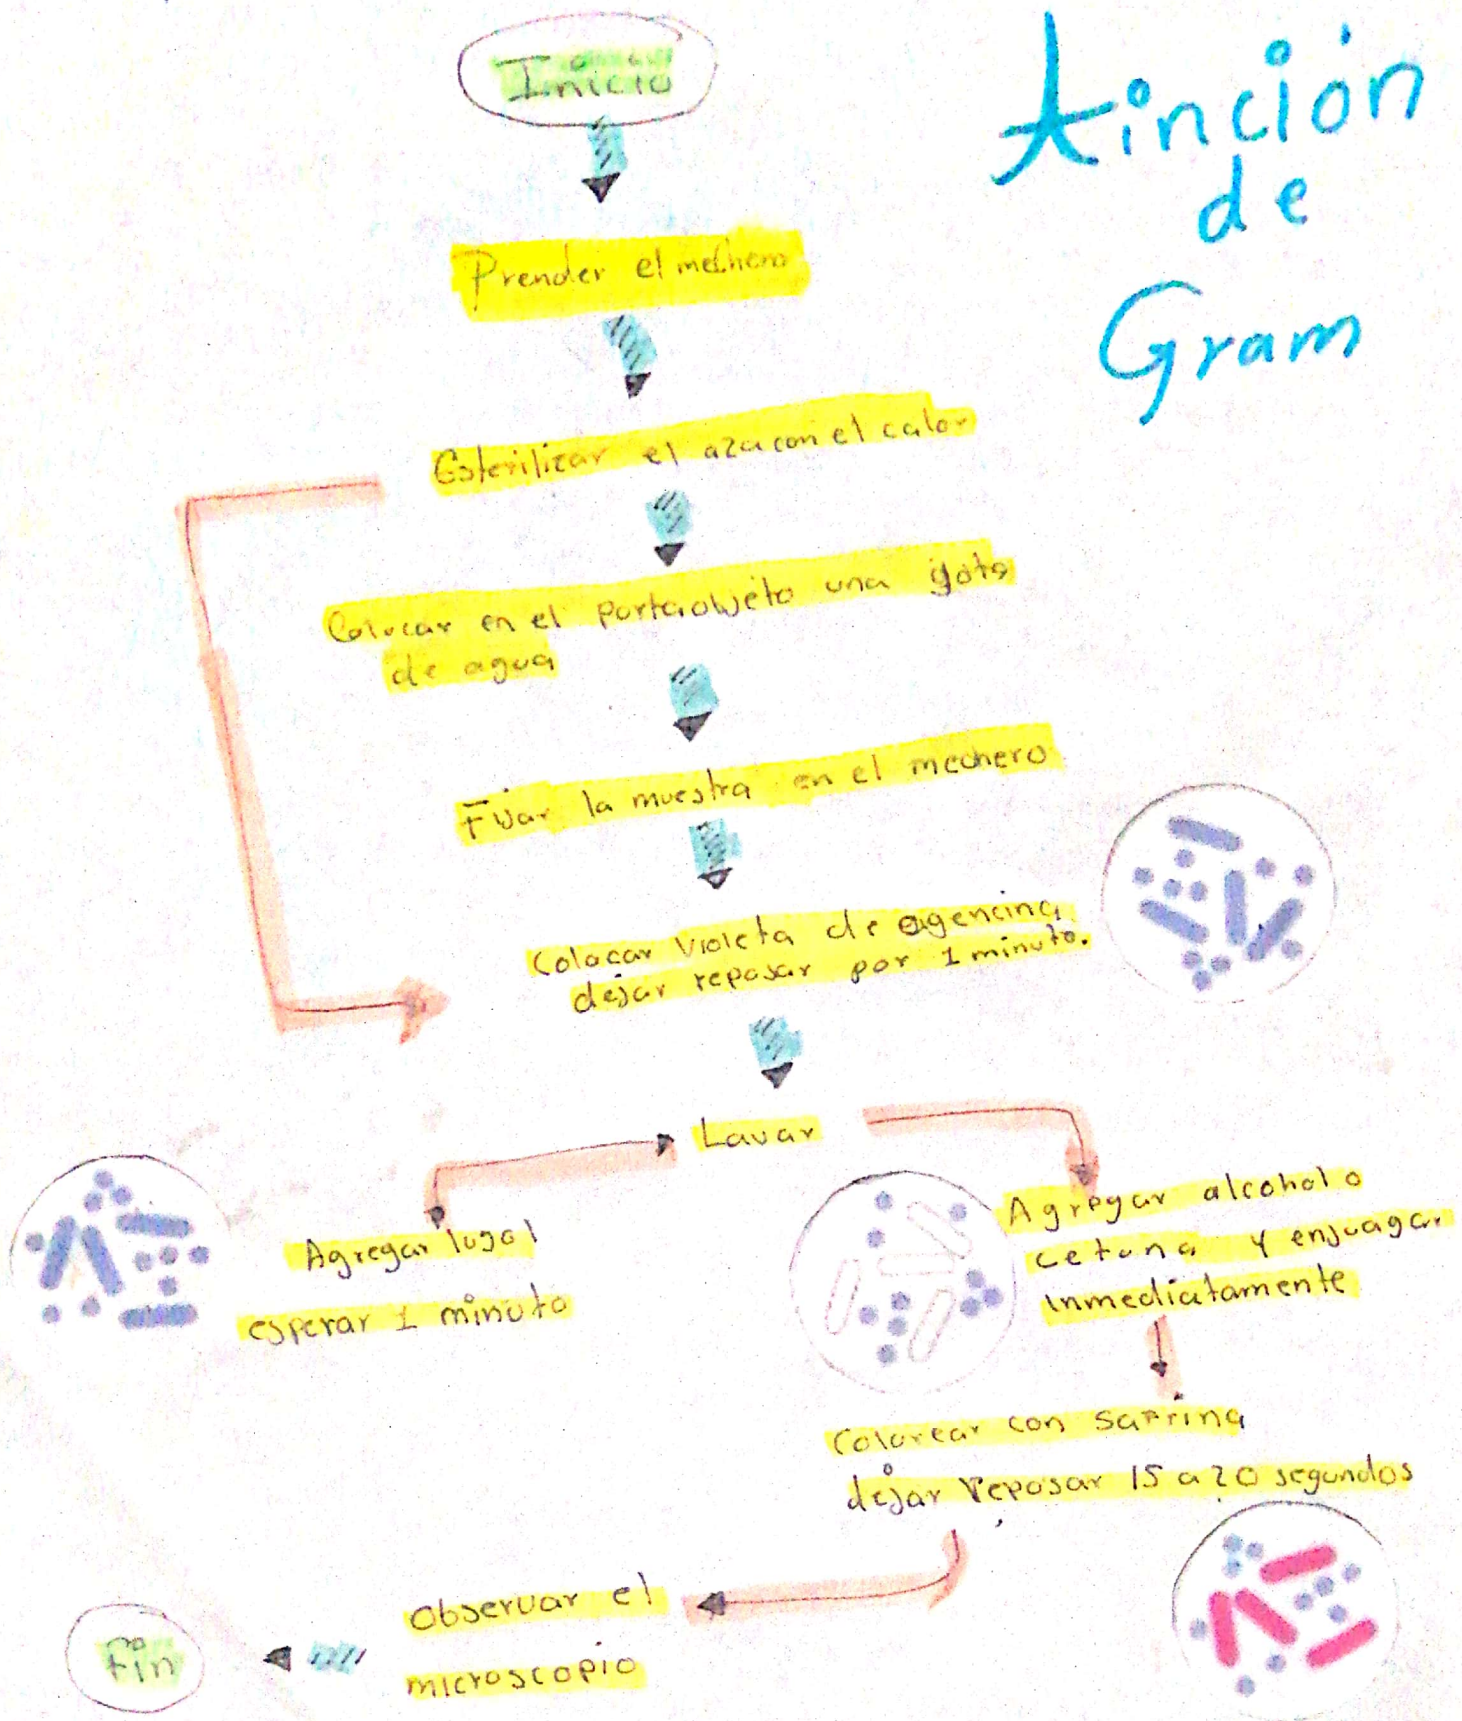 Inicio
tinción
de
Gram
Prender el mechero
Esterilizar el aza con el calor
Colocar en el portaobjeto una gota
de agua
Fijar la muestra en el mechero
Colocar violeta de agencina
dejar reposar por 1 minuto.
Lavar
Agregar lugol
esperar 1 minuto
Agregar alcohol o
cetona y enjuagar
inmediatamente
Colorear con Safrina
dejar reposar 15 a 20 segundos
Observar el
microscopio
Fin